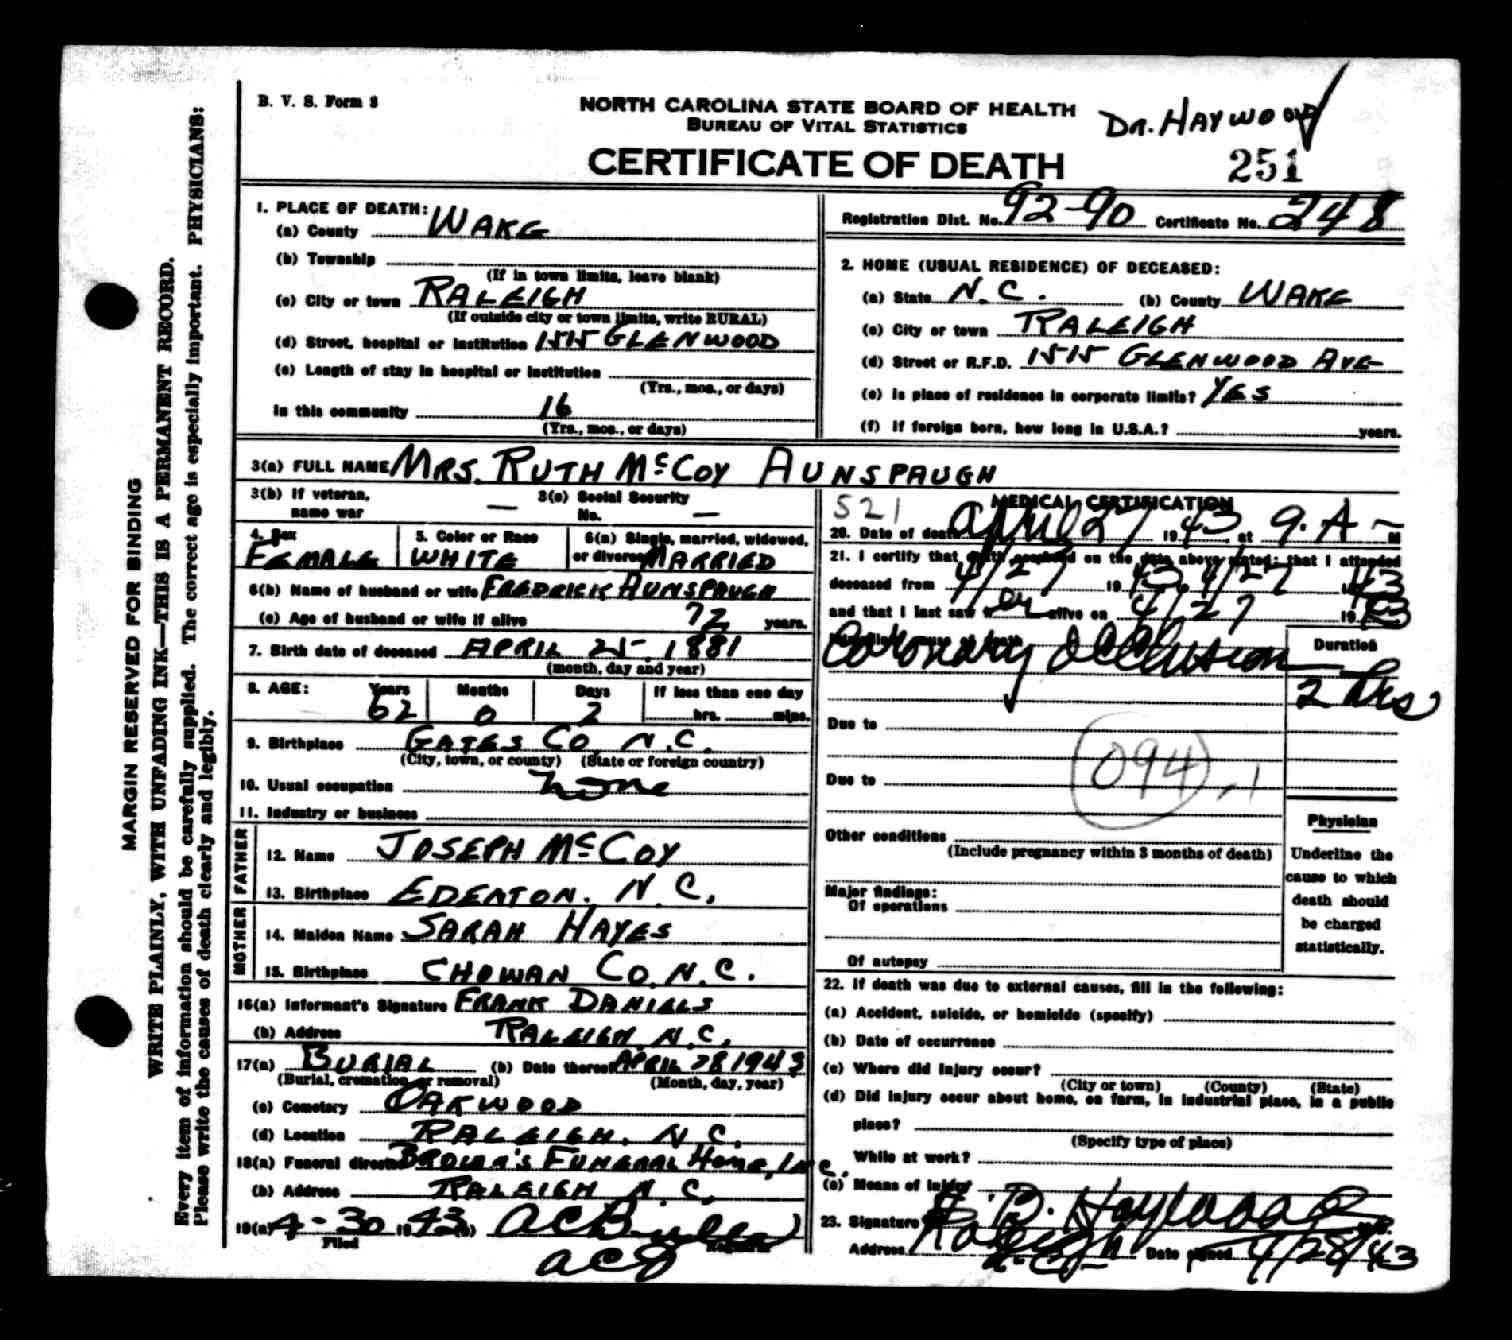 B. V. S. Form 8
NORTH CAROLINA STATE BOARD OF HEALTH
BUREAU OF VITAL STATISTICS
CERTIFICATE OF DEATH
DR. HAYWOOD
251
Registration Dist. No. 92-90 Certificate No. 248
1. PLACE OF DEATH:
(a) County WAKE
(b) Township
(If in town limits, leave blank)
(c) City or town RALEIGH
(If outside city or town limits, write RURAL)
(d) Street, hospital or institution 1515 GLENWOOD
(e) Length of stay in hospital or institution
(Yrs., mos., or days)
In this community 16
(Yrs., mos., or days)
2. HOME (USUAL RESIDENCE) OF DECEASED:
(a) State N.C. (b) County WAKE
(c) City or town RALEIGH
(d) Street or R.F.D. 1515 GLENWOOD AVE
(e) Is place of residence in corporate limits? YES
(f) If foreign born, how long in U.S.A.? years.
3(a) FULL NAME MRS. RUTH McCOY AUNSPAUGH
3(b) If veteran, name war —
3(c) Social Security No. —
4. Sex FEMALE
5. Color or Race WHITE
6(a) Single, married, widowed, or divorced MARRIED
6(b) Name of husband or wife FREDRICK AUNSPAUGH
(c) Age of husband or wife if alive 72 years.
7. Birth date of deceased APRIL 25, 1881
(month, day and year)
8. AGE: Years 62 Months 0 Days 2 If less than one day hrs. mins.
9. Birthplace GATES CO. N.C.
(City, town, or county) (State or foreign country)
10. Usual occupation none
11. Industry or business
FATHER
12. Name JOSEPH McCOY
13. Birthplace EDENTON. N.C.
MOTHER
14. Maiden Name SARAH HAYES
15. Birthplace CHOWAN CO. N.C.
16(a) Informant's Signature FRANK DANIELS
(b) Address RALEIGH. N.C.
17(a) BURIAL (b) Date thereof APRIL 28 1943
(Burial, cremation or removal) (Month, day, year)
(c) Cemetery OAKWOOD
(d) Location RALEIGH. N.C.
18(a) Funeral director BROWN'S FUNERAL HOME, INC.
(b) Address RALEIGH N.C.
19(a) 4-30 1943 (b)
Filed Registrar
521
MEDICAL CERTIFICATION
20. Date of death April 27 1943 at 9. A M
21. I certify that death occurred on the date above stated; that I attended
deceased from 4/27 1943, 4/27 1943
and that I last saw her alive on 4/27 1943
Immediate cause of death
Coronary Occlusion
Duration
2 hrs
Due to
094.1
Due to
Other conditions
(Include pregnancy within 3 months of death)
Major findings:
Of operations
Of autopsy
Physician
Underline the
cause to which
death should
be charged
statistically.
22. If death was due to external causes, fill in the following:
(a) Accident, suicide, or homicide (specify)
(b) Date of occurrence
(c) Where did injury occur?
(City or town) (County) (State)
(d) Did injury occur about home, on farm, in industrial place, in a public
place?
(Specify type of place)
While at work?
(e) Means of injury
23. Signature H. B. Haywood
Address Raleigh N.C. Date signed 4/28/43
MARGIN RESERVED FOR BINDING
WRITE PLAINLY, WITH UNFADING INK—THIS IS A PERMANENT RECORD.
Every item of information should be carefully supplied. The correct age is especially important. PHYSICIANS:
Please write the causes of death clearly and legibly.